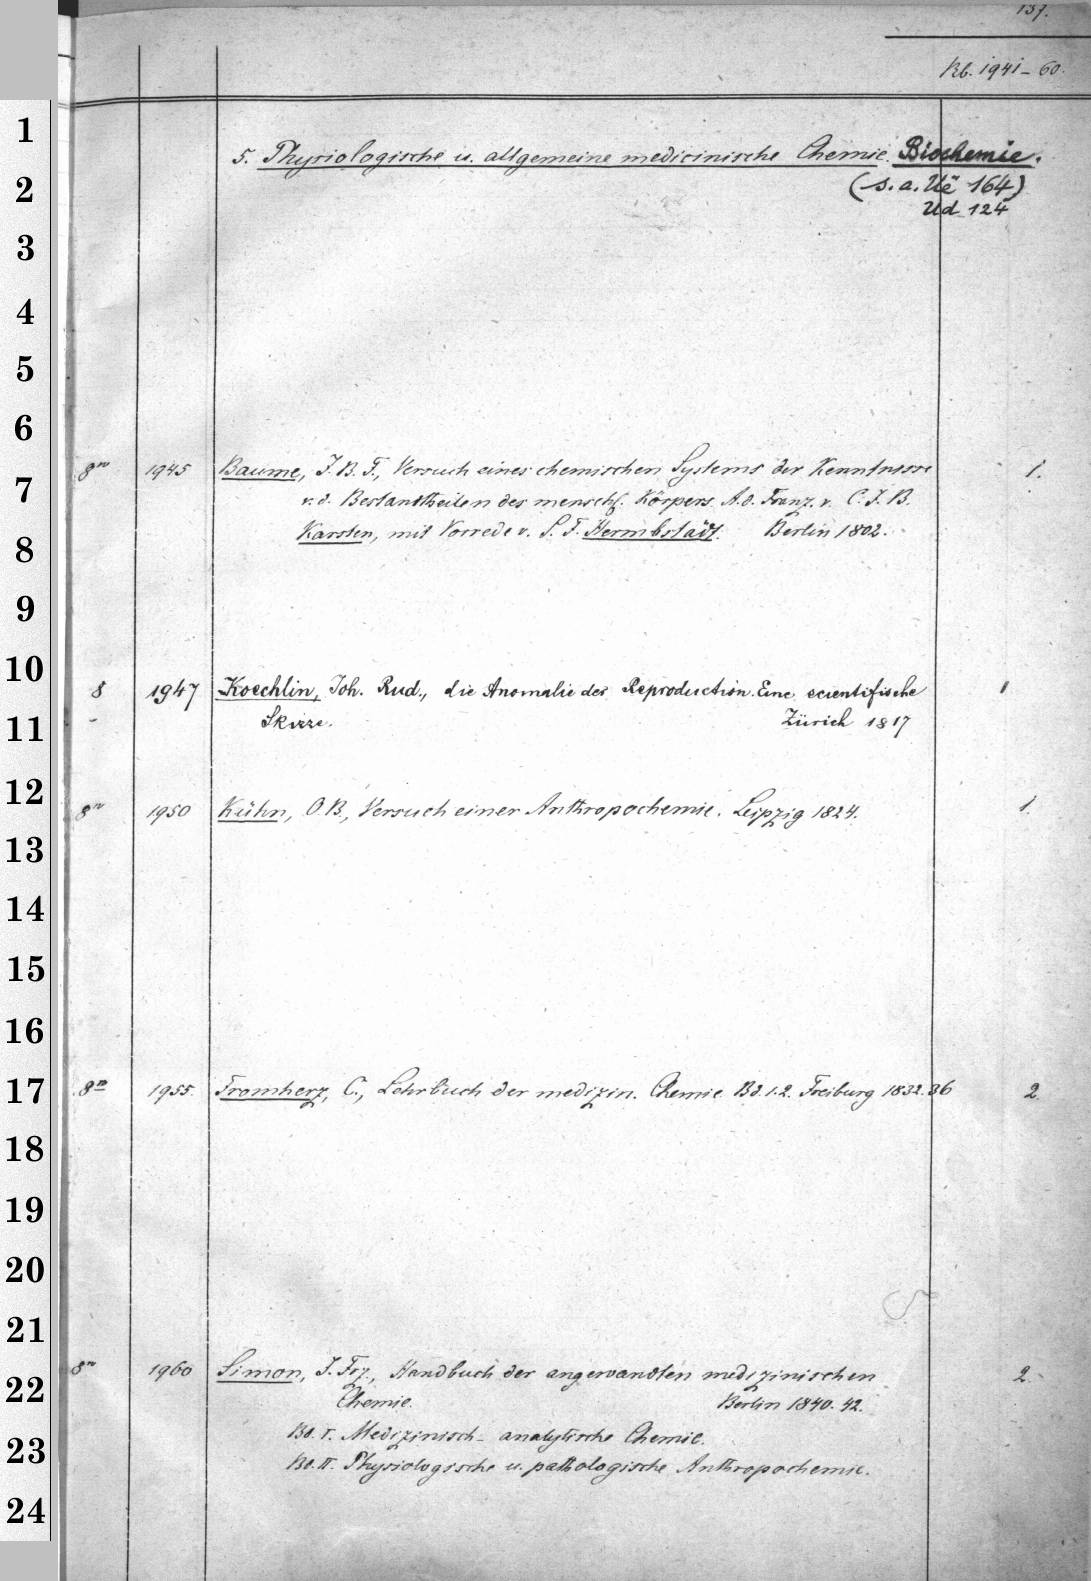 137.
Kb. 1941-60.
5. Physiologische u. allgemeine medicinische Chemie. Biochemie.
(s. a. Ue 164)
Ud 124
8° 1945 Baume, J. B. F., Versuch eines chemischen Systems der Kenntnisse 1.
v. d. Bestandtheilen des menschl. Körpers. A. d. Franz. v. C. J. B.
Karsten, mit Vorrede v. S. F. Hermbstädt. Berlin 1802.
8 1947 Koechlin, Joh. Rud., die Anomalie der Reproduction. Eine scientifische 1
Skizze. Zürich 1817
8° 1950 Kühn, O. B., Versuch einer Anthropochemie. Leipzig 1824. 1.
8° 1955. Fromherz, C., Lehrbuch der medizin. Chemie. Bd. 1.2. Freiburg 1832.36 2.
8° 1960 Simon, J. Frz., Handbuch der angewandten medizinischen 2.
Chemie. Berlin 1840.42.
Bd. I. Medizinisch-analytische Chemie.
Bd. II. Physiologische u. pathologische Anthropochemie.
1
2
3
4
5
6
7
8
9
10
11
12
13
14
15
16
17
18
19
20
21
22
23
24